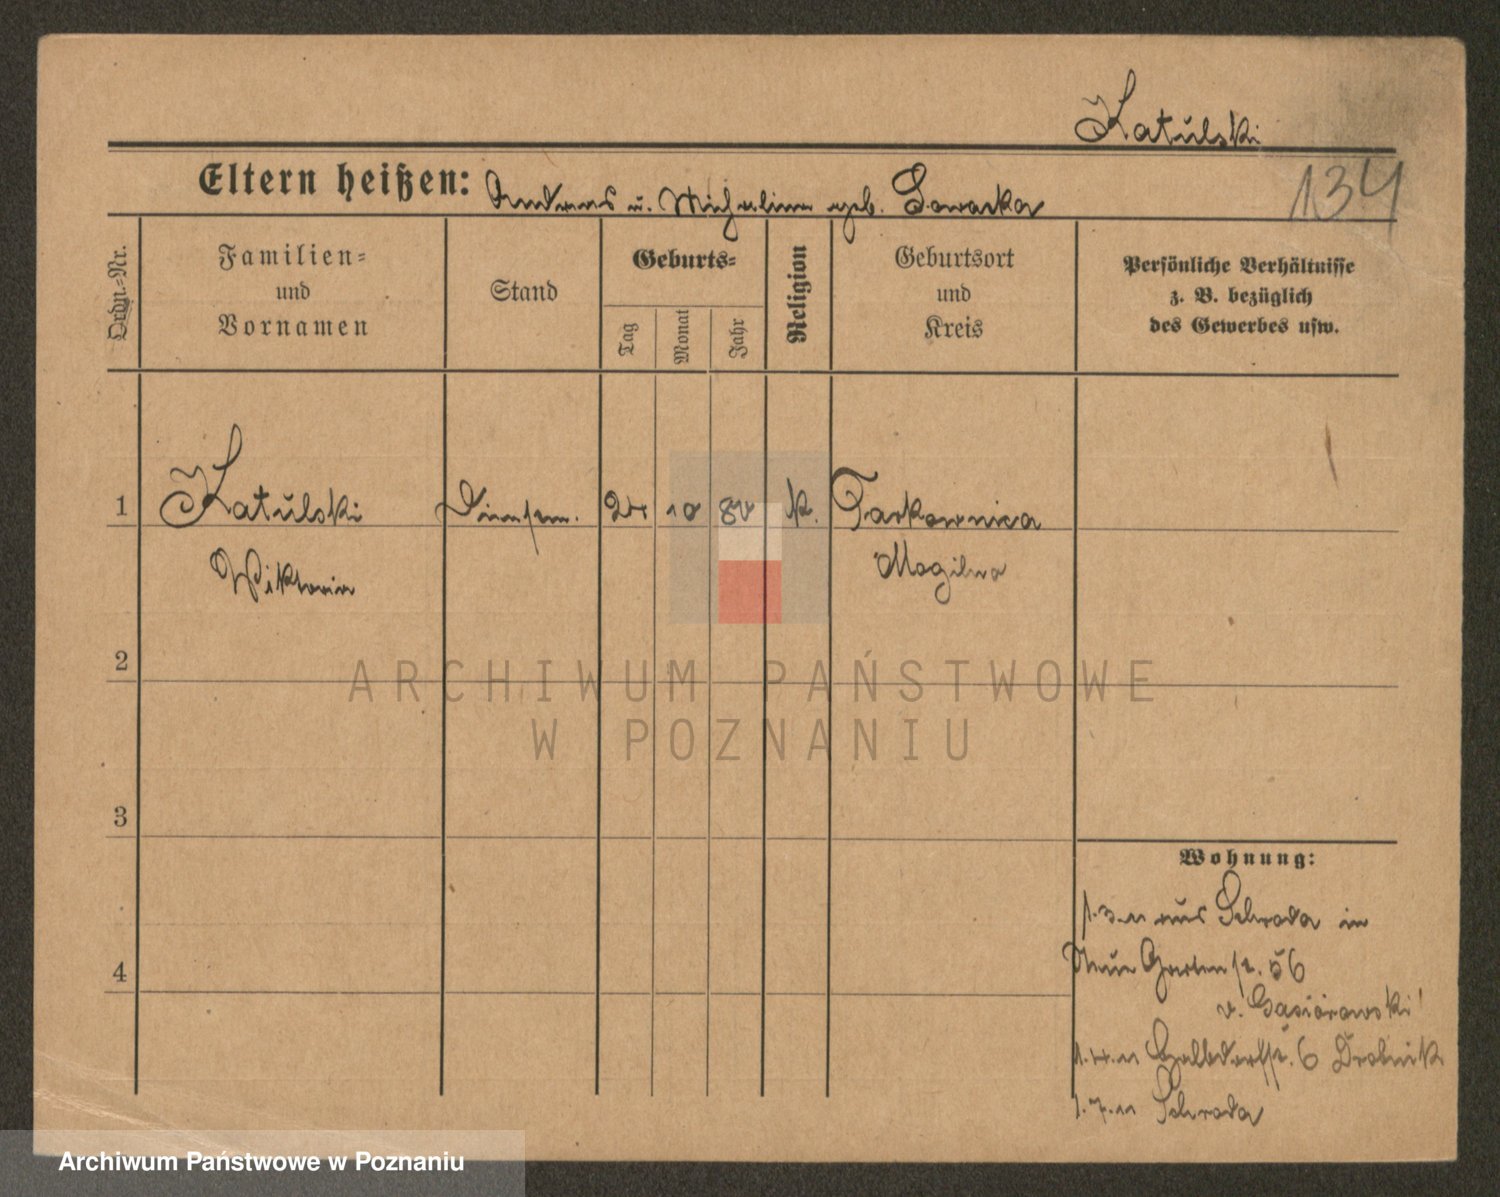 Katulski
134
Eltern heißen: Andreas u. Michalina geb.
Ordn.-Nr.
Familien-
und
Vornamen
Stand
Geburts-
Tag
Monat
Jahr
Religion
Geburtsort
und
Kreis
Persönliche Verhältnisse
z. B. bezüglich
des Gewerbes usw.
1
Katulski
10
k.
Wiktoria
Mogilno
2
3
4
Wohnung:
1.3.11 aus Schroda in
Neue Gartenstr. 56
v. Gasiorowski
6 Drobnik
1.7.11 Schroda
ARCHIWUM PAŃSTWOWE
W POZNANIU
Archiwum Państwowe w Poznaniu